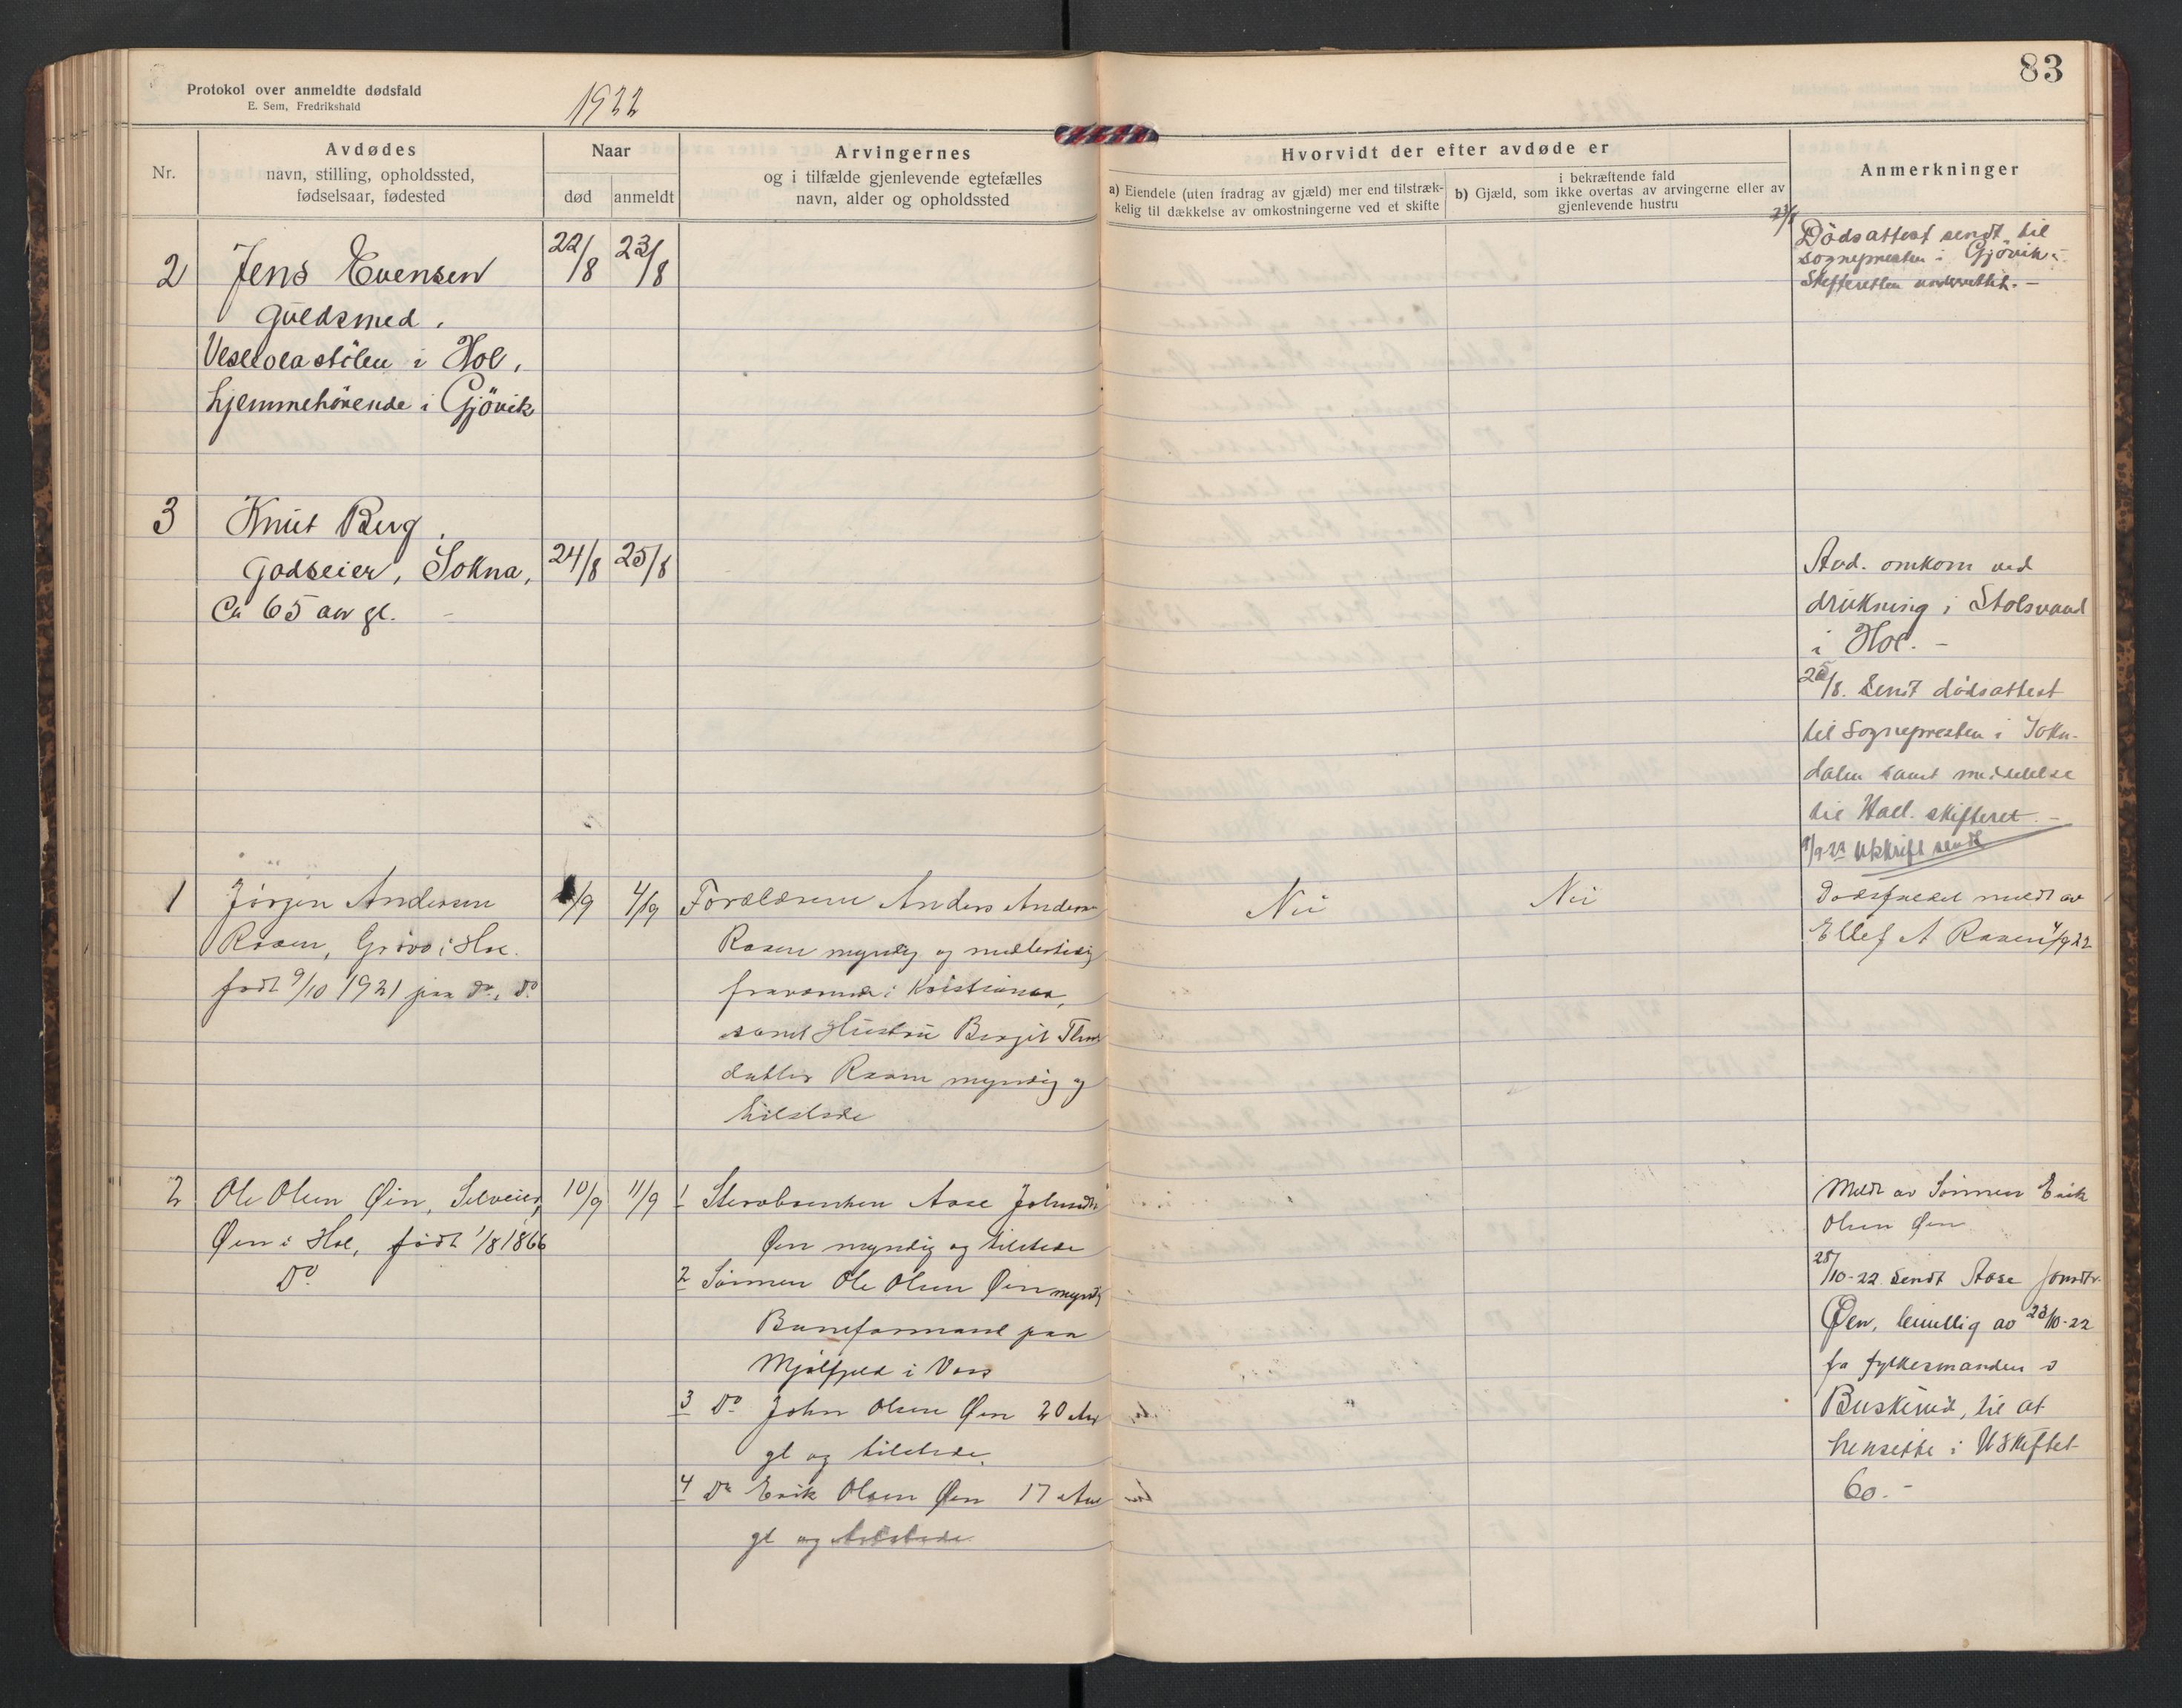 83
Protokol over anmeldte dødsfald
E. Sem, Fredrikshald
1922
Nr.
Avdødes
navn, stilling, opholdssted,
fødselsaar, fødested
Naar
død
anmeldt
Arvingernes
og i tilfælde gjenlevende egtefælles
navn, alder og opholdssted
Hvorvidt der efter avdøde er
a) Eiendele (uten fradrag av gjæld) mer end tilstræk-
kelig til dækkelse av omkostningerne ved et skifte
i bekræftende fald
b) Gjæld, som ikke overtas av arvingerne eller av
gjenlevende hustru
Anmerkninger
2
Jens Evensen
Guldsmed.
Vesleolastölen i Hol,
hjemmehörende i Gjövik
22/8
23/8
23/8
Dödsattest sendt til
sognepresten i Gjövik.
Skifteretten underrettet. –
3
Knut Berg,
Godseier, Sokna,
Ca 65 aar gl. –
24/8
25/8
Avd. omkom ved
drukning i Stolsvand
i Hol. –
25/8. Sendt dödsattest
til Sognepresten i Sokn-
dalen samt meddelelse
til Hall. skifteret. –
9/9-22 utskrift sendt
1
Jörgen Andersen
Raaen, Grövo i Hol.
født 9/10 1921 paa do, do
/9
4/9
Forældrene Anders Andersen
Raaen myndig og midlertidig
fraværende i Kristiania,
samt Hustru Birgit
datter Raaen myndig og
tilstede
Nei
Nei
Dødsfaldet meldt av
Ellef A Raaen 4/9 22
2
Ole Olsen Øin, Selveier,
Øen i Hol, født 1/8 1866
Do
10/9
11/9
1 Aase Johnsdtr
Øen myndig og tilstede
2 Sønnen Ole Olsen Øen myndig
Baneformand paa
Mjölfjeld i Voss
3 Do John Olsen Øen 20 Aar
gl og tilstede.
4 Do Erik Olsen Øen 17 Aar
gl og tilstede
Meldt av Sønnen Erik
Olsen Øen
25/10-22. Sendt Aase Jonsdtr.
Øen, bevillig av 23/10-22
fra fylkesmanden i
Buskerud, til at
hensitte i Uskiftet
Bo. –